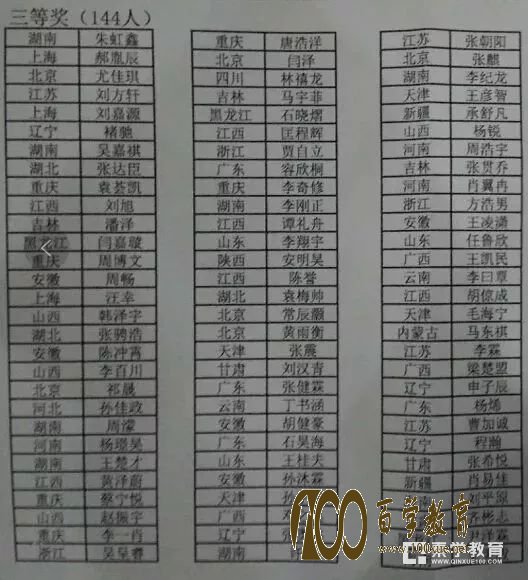 三等奖（144人）
湖南 朱虹鑫
上海 郝胤辰
北京 尤佳琪
江苏 刘方轩
上海 刘嘉源
辽宁 褚驰
湖南 吴嘉祺
湖北 张达臣
重庆 袁荟凯
江西 刘旭
吉林 潘泽
黑龙江 闫嘉
重庆 周博文
安徽 周畅
上海 汪幸
山西 韩泽宇
湖北 张骋浩
安徽 陈冲霄
山西 李百川
北京 祁晟
河北 孙佳政
湖南 周濛
河南 杨璟昊
湖南 王楚才
江西 黄泽蔚
重庆 蔡宁悦
山西 赵振宇
重庆 李一肖
浙江 吴呈睿
重庆 唐浩洋
北京 闫泽
四川 林禧龙
吉林 马宇菲
黑龙江 石晓熠
江西 匡程辉
浙江 贾自立
广东 容欣桐
重庆 李奇修
湖南 李刚正
江西 谭礼舟
山东 李翔宇
陕西 安明昊
江西 陈誉
湖北 袁梅帅
北京 常辰灏
北京 黄雨衡
天津 张震
甘肃 刘汉青
广东 张健霖
云南 丁书涵
安徽 胡健豪
广东 石昊海
山东 王桂夫
安徽 孙沐霖
天津
广东
辽宁
湖南
江苏 张朝阳
北京 张麒
湖南 李纪龙
天津 王彦智
新疆 承舒凡
山西 杨锐
河南 周浩宇
吉林 张贯乔
河南 肖翼冉
浙江 方浩男
安徽 王凌潇
山东 任鲁欣
广西 王凯民
云南 李曰覃
江西 胡倞成
天津 毛海宁
内蒙古 马东祺
江苏 李霖
广西 梁楚盟
辽宁 申子辰
广东 杨烯
江苏 曹加诚
辽宁 程瀚
甘肃 张希悦
新疆 肖易佳
刘平原
100 百学教育
www.100xue.com
秦学教育
WWW.QINXUE100.COM